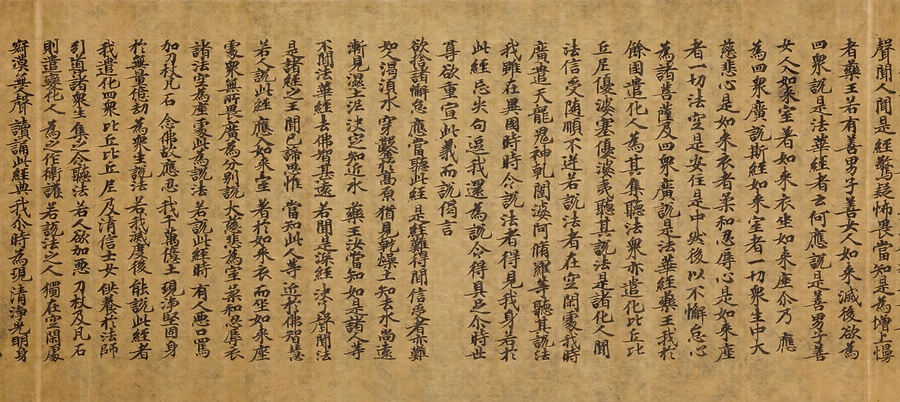 聲聞人聞是經驚疑怖畏當知是為增上慢
者藥王若有善男子善女人如來滅後欲為
四眾說是法華經者云何應說是善男子善
女人入如來室著如來衣坐如來座尒乃應
為四眾廣說斯經如來室者一切眾生中大
慈悲心是如來衣者柔和忍辱心是如來座
者一切法空是安住是中然後以不懈怠心
為諸菩薩及四眾廣說是法華經藥王我於
餘國遣化人為其集聽法眾亦遣化比丘比
丘尼優婆塞優婆夷聽其說法是諸化人聞
法信受隨順不逆若說法者在空閑處我時
廣遣天龍鬼神乹闥婆阿脩羅等聽其說法
我雖在異國時時令說法者得見我身若於
此經忘失句逗我還為說令得具足尒時世
尊欲重宣此義而說偈言
欲捨諸懈怠 應當聽此經 是經難得聞 信受者亦難
如人渴須水 穿鑿於高原 猶見乾燥土 知去水尚遠
漸見濕土泥 決定知近水 藥王汝當知 如是諸人等
不聞法華經 去佛智甚遠 若聞是深經 決了聲聞法
是諸經之王 聞已諦思惟 當知此人等 近於佛智慧
若人說此經 應入如來室 著於如來衣 而坐如來座
處眾無所畏 廣為分別說 大慈悲為室 柔和忍辱衣
諸法空為座 處此為說法 若說此經時 有人惡口罵
加刀杖瓦石 念佛故應忍 我千萬億土 現淨堅固身
於無量億劫 為眾生說法 若我滅度後 能說此經者
我遣化四眾 比丘比丘尼 及清信士女 供養於法師
引導諸眾生 集之令聽法 若人欲加惡 刀杖及瓦石
則遣變化人 為之作衛護 若說法之人 獨在空閑處
寂漠無人聲 讀誦此經典 我尒時為現 清淨光明身